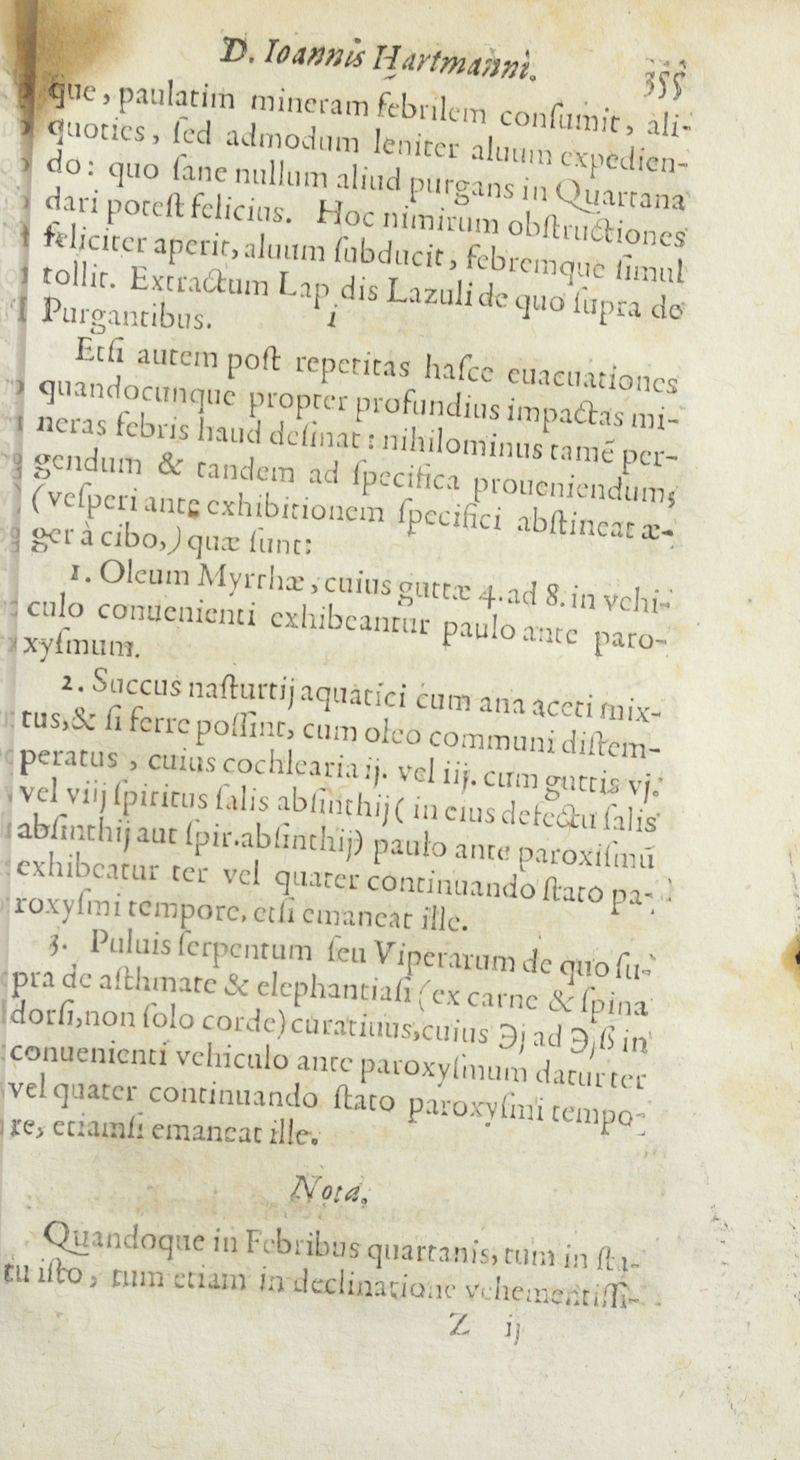 D. Ioannis Hartmanni. 355
que, paulatim mineram febrilem conſumit, ali-
quoties, ſed admodum leniter aluum expedien-
do: quo ſane nullum aliud purgans in Quartana
dari poteſt felicius. Hoc nimirum obſtructiones
feliciter aperit, aluum ſubducit, febremque ſimul
tollit. Extractum Lap dis Lazuli de quo ſupra de
Purgantibus. i
Etſi autem poſt repetitas haſce euacuationes
quandocunque propter profundius impactas mi-
neras febris haud deſinat: nihilominus tamē per-
gendum & tandem ad ſpecifica proueniendum;
(veſperi ante exhibitionem ſpecifici abſtineat æ-
ger à cibo,) quæ ſunt:
1. Oleum Myrrhæ, cuius guttæ 4. ad 8. in vehi-
culo conuenienti exhibeantur paulo ante paro-
xyſmum.
2. Succus naſturtij aquatici cum ana aceti mix-
tus, & ſi ferre poſſint, cum oleo communi diſtem-
peratus, cuius cochlearia ij. vel iij. cum guttis vj.
vel viij ſpiritus ſalis abſinthij (in eius defectu ſalis
abſinthij aut ſpir. abſinthij) paulo ante paroxiſmū
exhibeatur ter vel quater continuando ſtato pa-
roxyſmi tempore, etſi emaneat ille.
3. Puluis ſerpentum ſeu Viperarum de quo ſu-
pra de aſthmate & elephantiaſi (ex carne & ſpina
dorſi, non ſolo corde) curatiuus, cuius ℈j ad ℈jß in
conuenienti vehiculo ante paroxyſmum datur ter
vel quater continuando ſtato paroxyſmi tempo-
re, etiamſi emaneat ille.
Nota,
Quandoque in Febribus quartanis, tum in ſta-
tu iſto, tum etiam in declinatione vehementiſſi-
Z ij